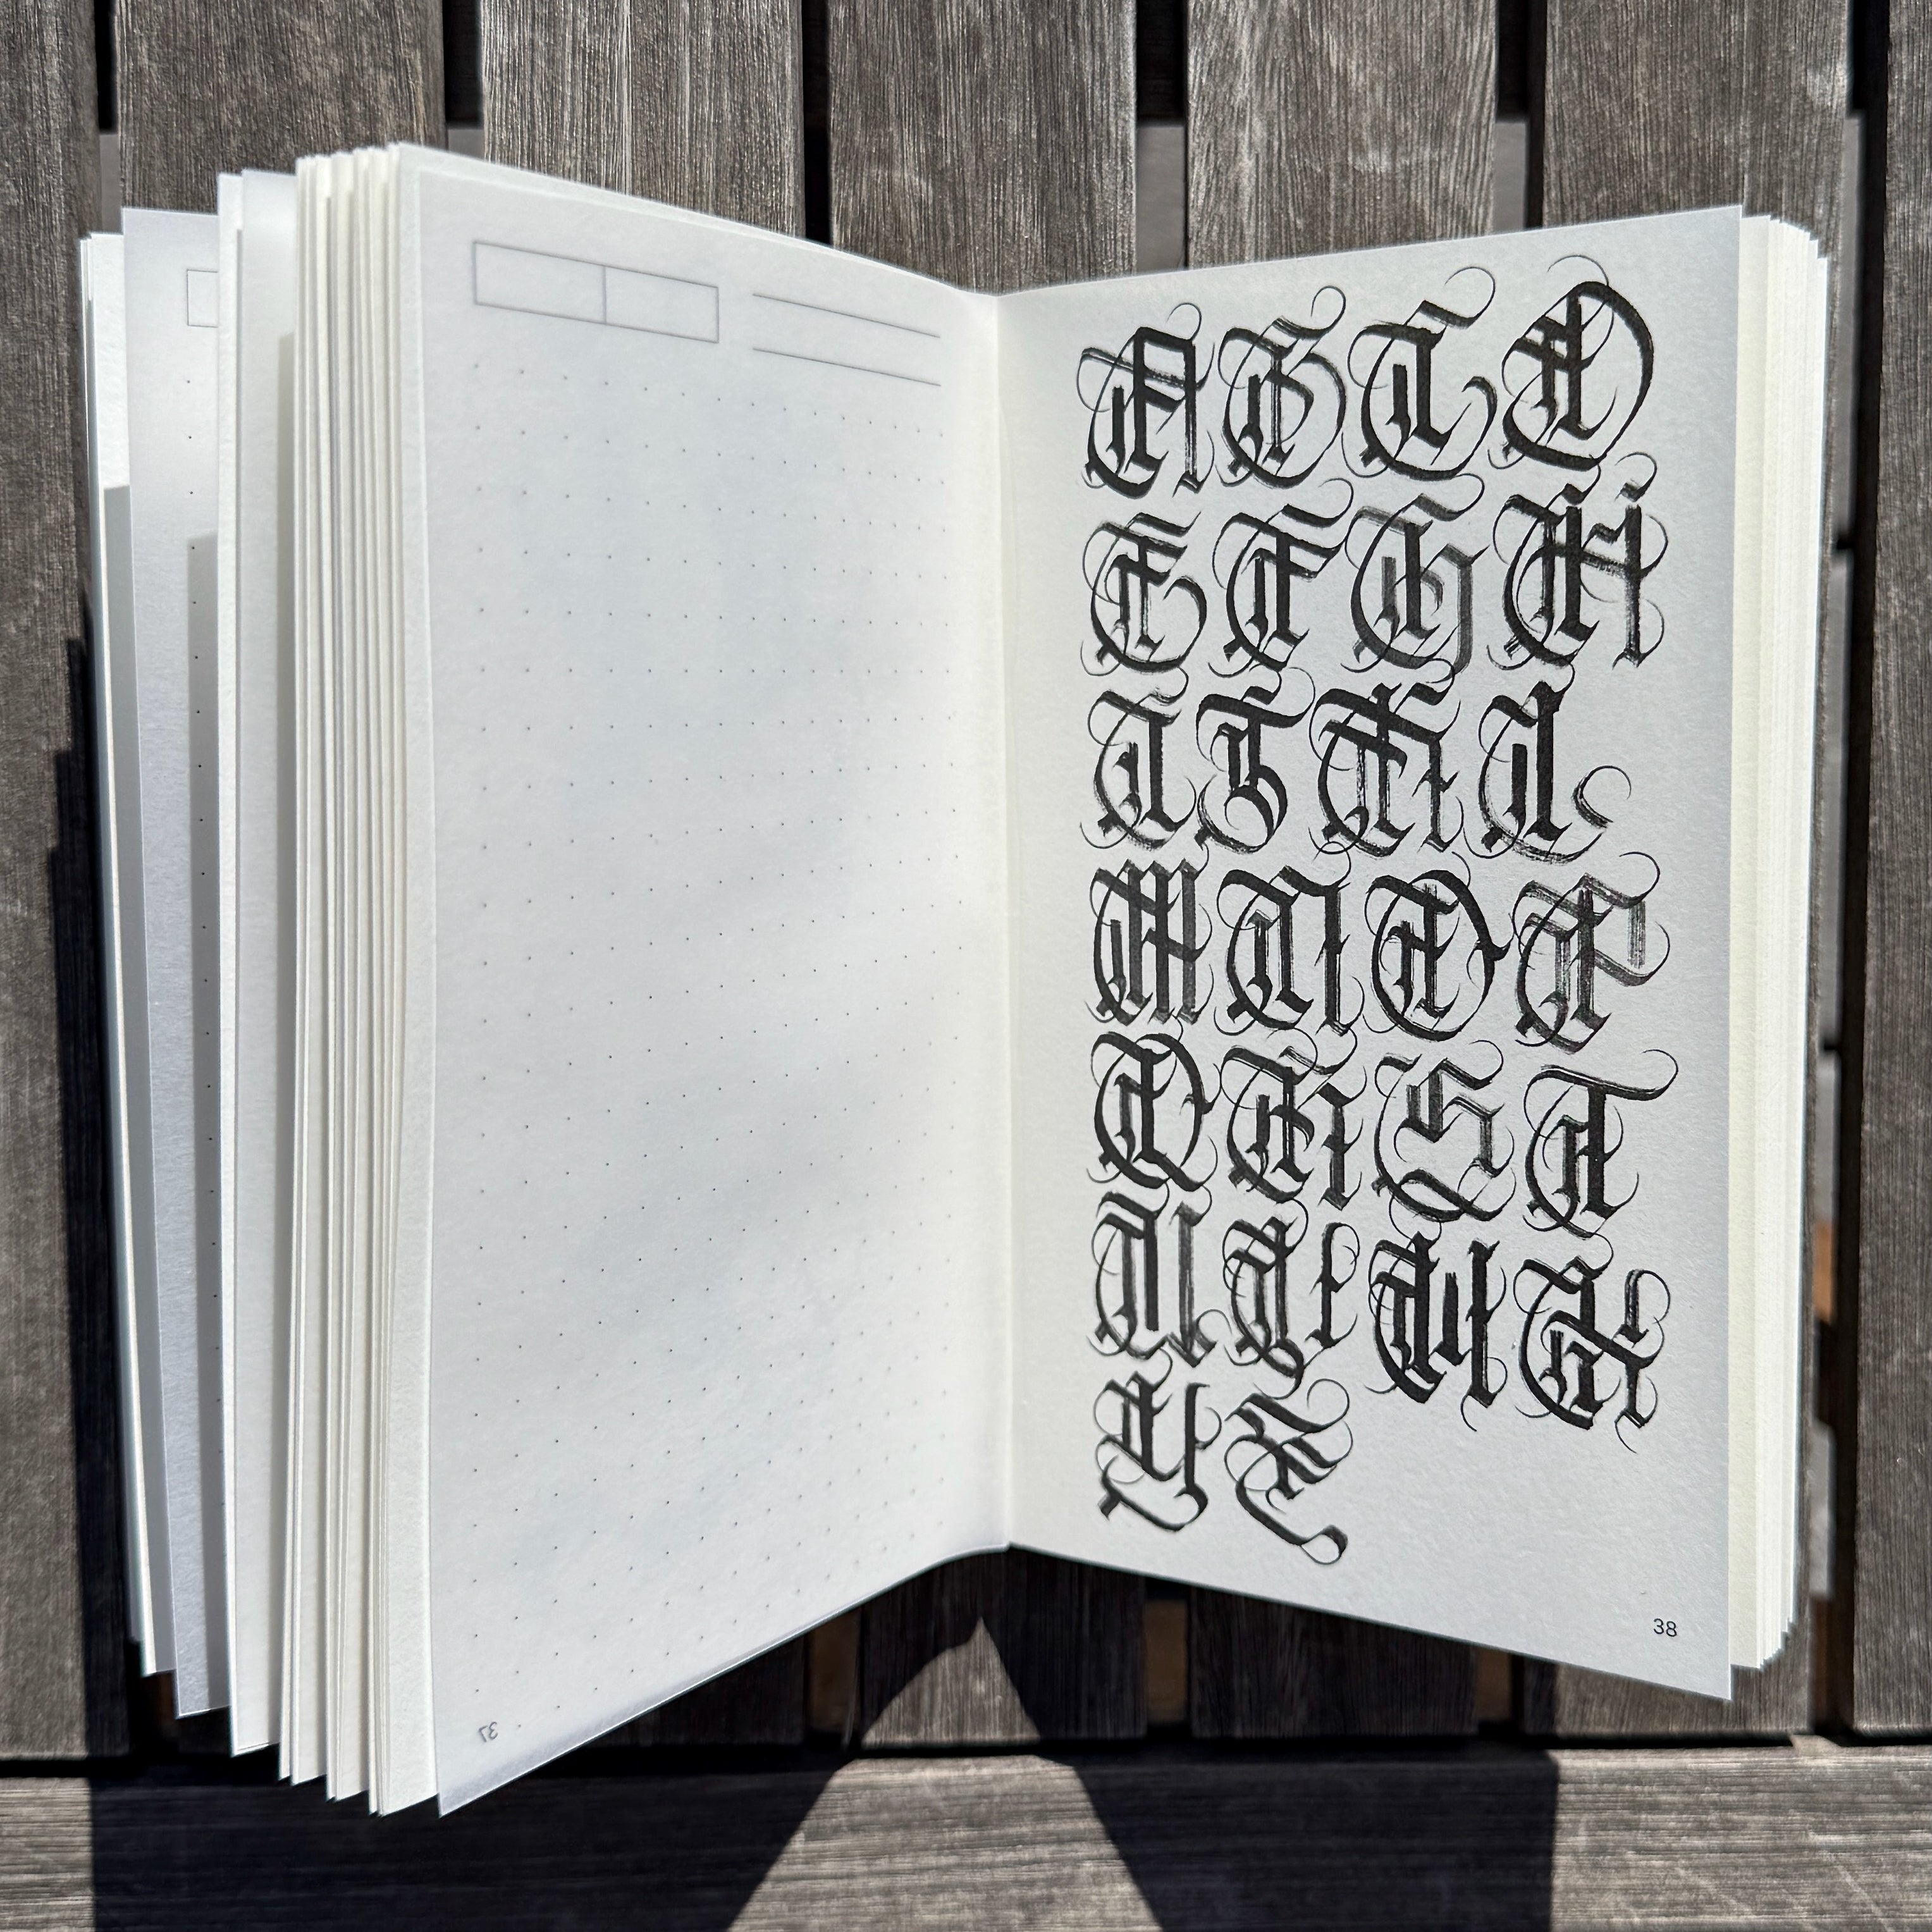 A B C D
E F G H
I J K L
M N O P
Q R S T
U V W X
Y Z
37
38